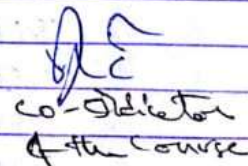 co-ordinator
of the course